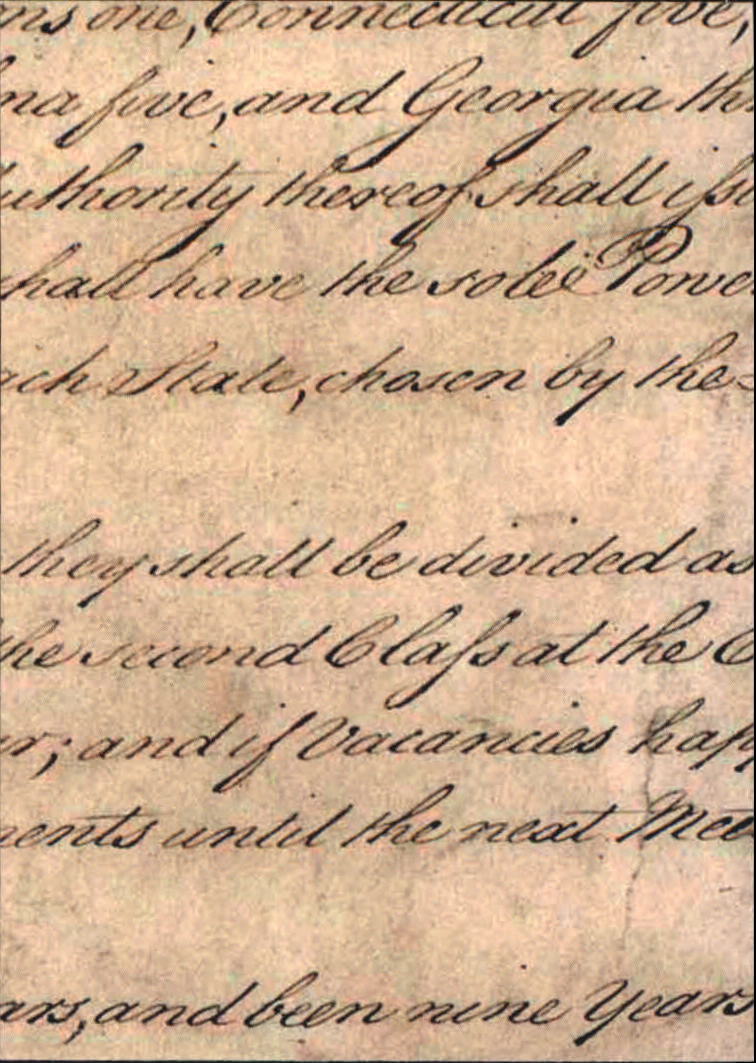 ns one, Connecticut five,
na five, and Georgia th
Authority thereof shall issu
hall have the sole Power
ach State, chosen by the
they shall be divided as
the second Class at the C
ar; and if Vacancies happ
ments until the next Mee
ars, and been nine Years